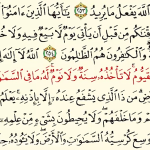 ٱللَّهَ يَفْعَلُ مَا يُرِيدُ ٢٥٣ يَـٰٓأَيُّهَا ٱلَّذِينَ ءَامَنُوٓا۟
قْنَـٰكُم مِّن قَبْلِ أَن يَأْتِىَ يَوْمٌ لَّا بَيْعٌ فِيهِ وَلَا خُ
ٌ وَٱلْكَـٰفِرُونَ هُمُ ٱلظَّـٰلِمُونَ ٢٥٤ ٱللَّهُ لَآ إِلَـٰهَ إِلَّا
قَيُّومُ لَا تَأْخُذُهُۥ سِنَةٌ وَلَا نَوْمٌ لَّهُۥ مَا فِى ٱلسَّمَـٰوَ
ضِ مَن ذَا ٱلَّذِى يَشْفَعُ عِندَهُۥٓ إِلَّا بِإِذْنِهِۦ يَعْلَمُ
مْ وَمَا خَلْفَهُمْ وَلَا يُحِيطُونَ بِشَىْءٍ مِّنْ عِلْمِهِۦٓ
وَسِعَ كُرْسِيُّهُ ٱلسَّمَـٰوَٰتِ وَٱلْأَرْضَ وَلَا يَـُٔودُهُۥ